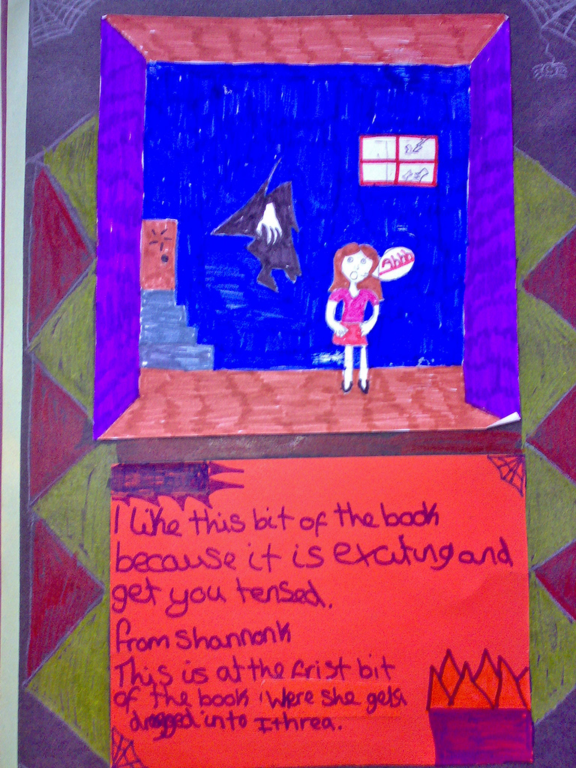 Ahhh
I like this bit of the book
because it is exciting and
get you tensed.
from shannonk
This is at the frist bit
of the book. Were she gets
dragged into Ithrea.